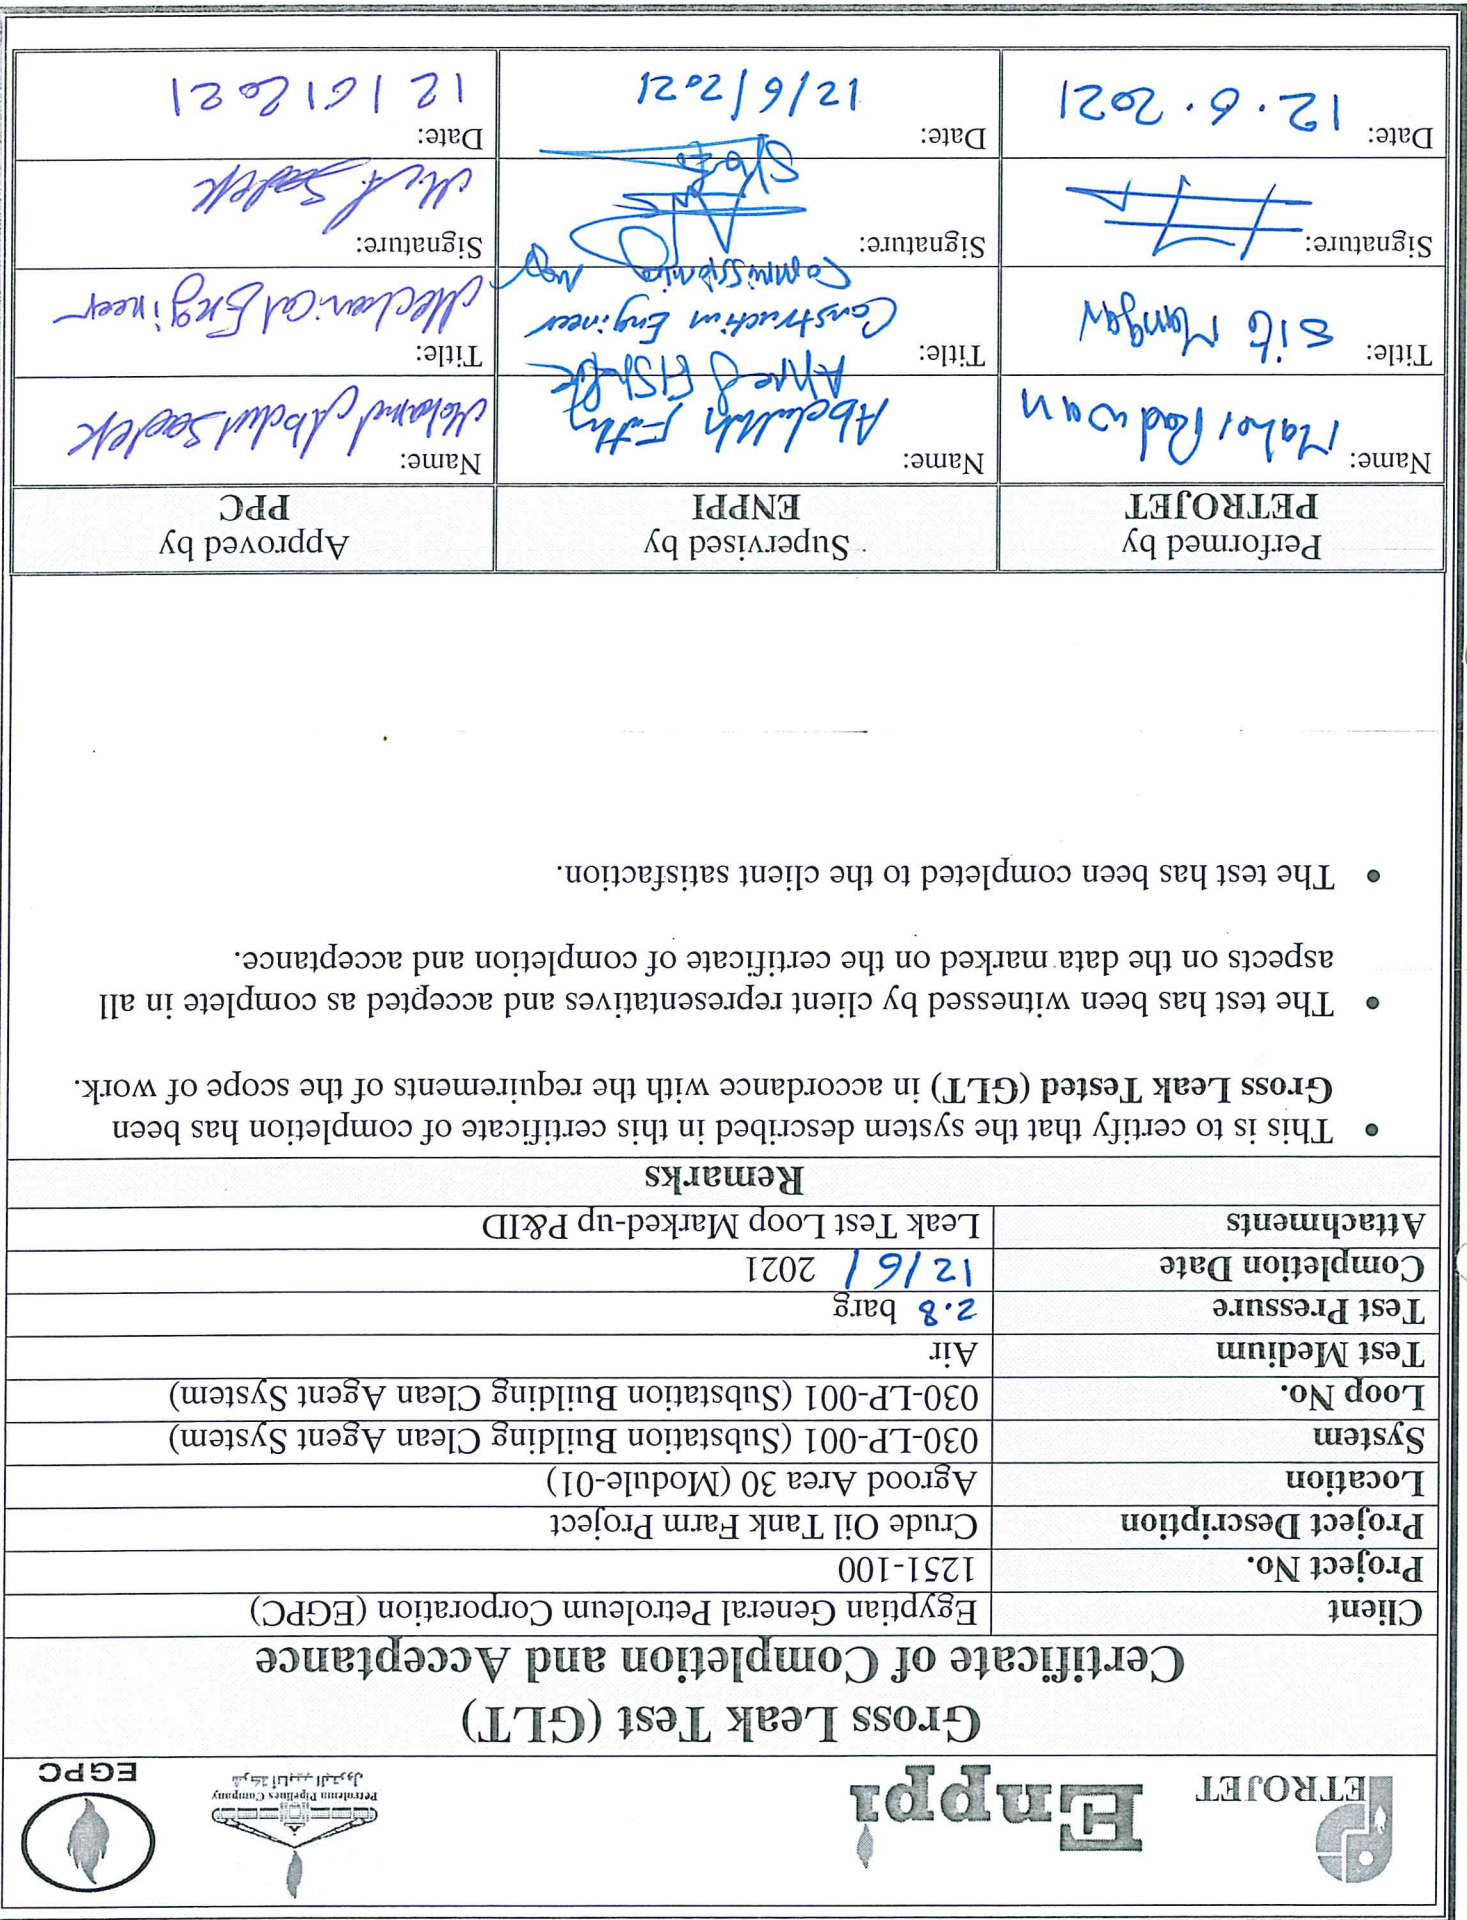 PETROJET
Enppi
Petroleum Pipelines Company
شركة أنابيب البترول
EGPC
Gross Leak Test (GLT)
Certificate of Completion and Acceptance
Client Egyptian General Petroleum Corporation (EGPC)
Project No. 1251-100
Project Description Crude Oil Tank Farm Project
Location Agrood Area 30 (Module-01)
System 030-LP-001 (Substation Building Clean Agent System)
Loop No. 030-LP-001 (Substation Building Clean Agent System)
Test Medium Air
Test Pressure 2.8 barg
Completion Date 12/6/ 2021
Attachments Leak Test Loop Marked-up P&ID
Remarks
• This is to certify that the system described in this certificate of completion has been
Gross Leak Tested (GLT) in accordance with the requirements of the scope of work.
• The test has been witnessed by client representatives and accepted as complete in all
aspects on the data marked on the certificate of completion and acceptance.
• The test has been completed to the client satisfaction.
Performed by
PETROJET
Supervised by
ENPPI
Approved by
PPC
Name: Maher Radwan
Name: Abdullah Fathy
Ahmed ElSh
Name: Mohamed Abdul Sadek
Title: Site Manger
Title: Construction Engineer
Commissioning
Title: Mechanical Engineer
Signature:
Signature:
Signature:
Date: 12.6.2021
Date: 12/6/2021
Date: 12/6/2021